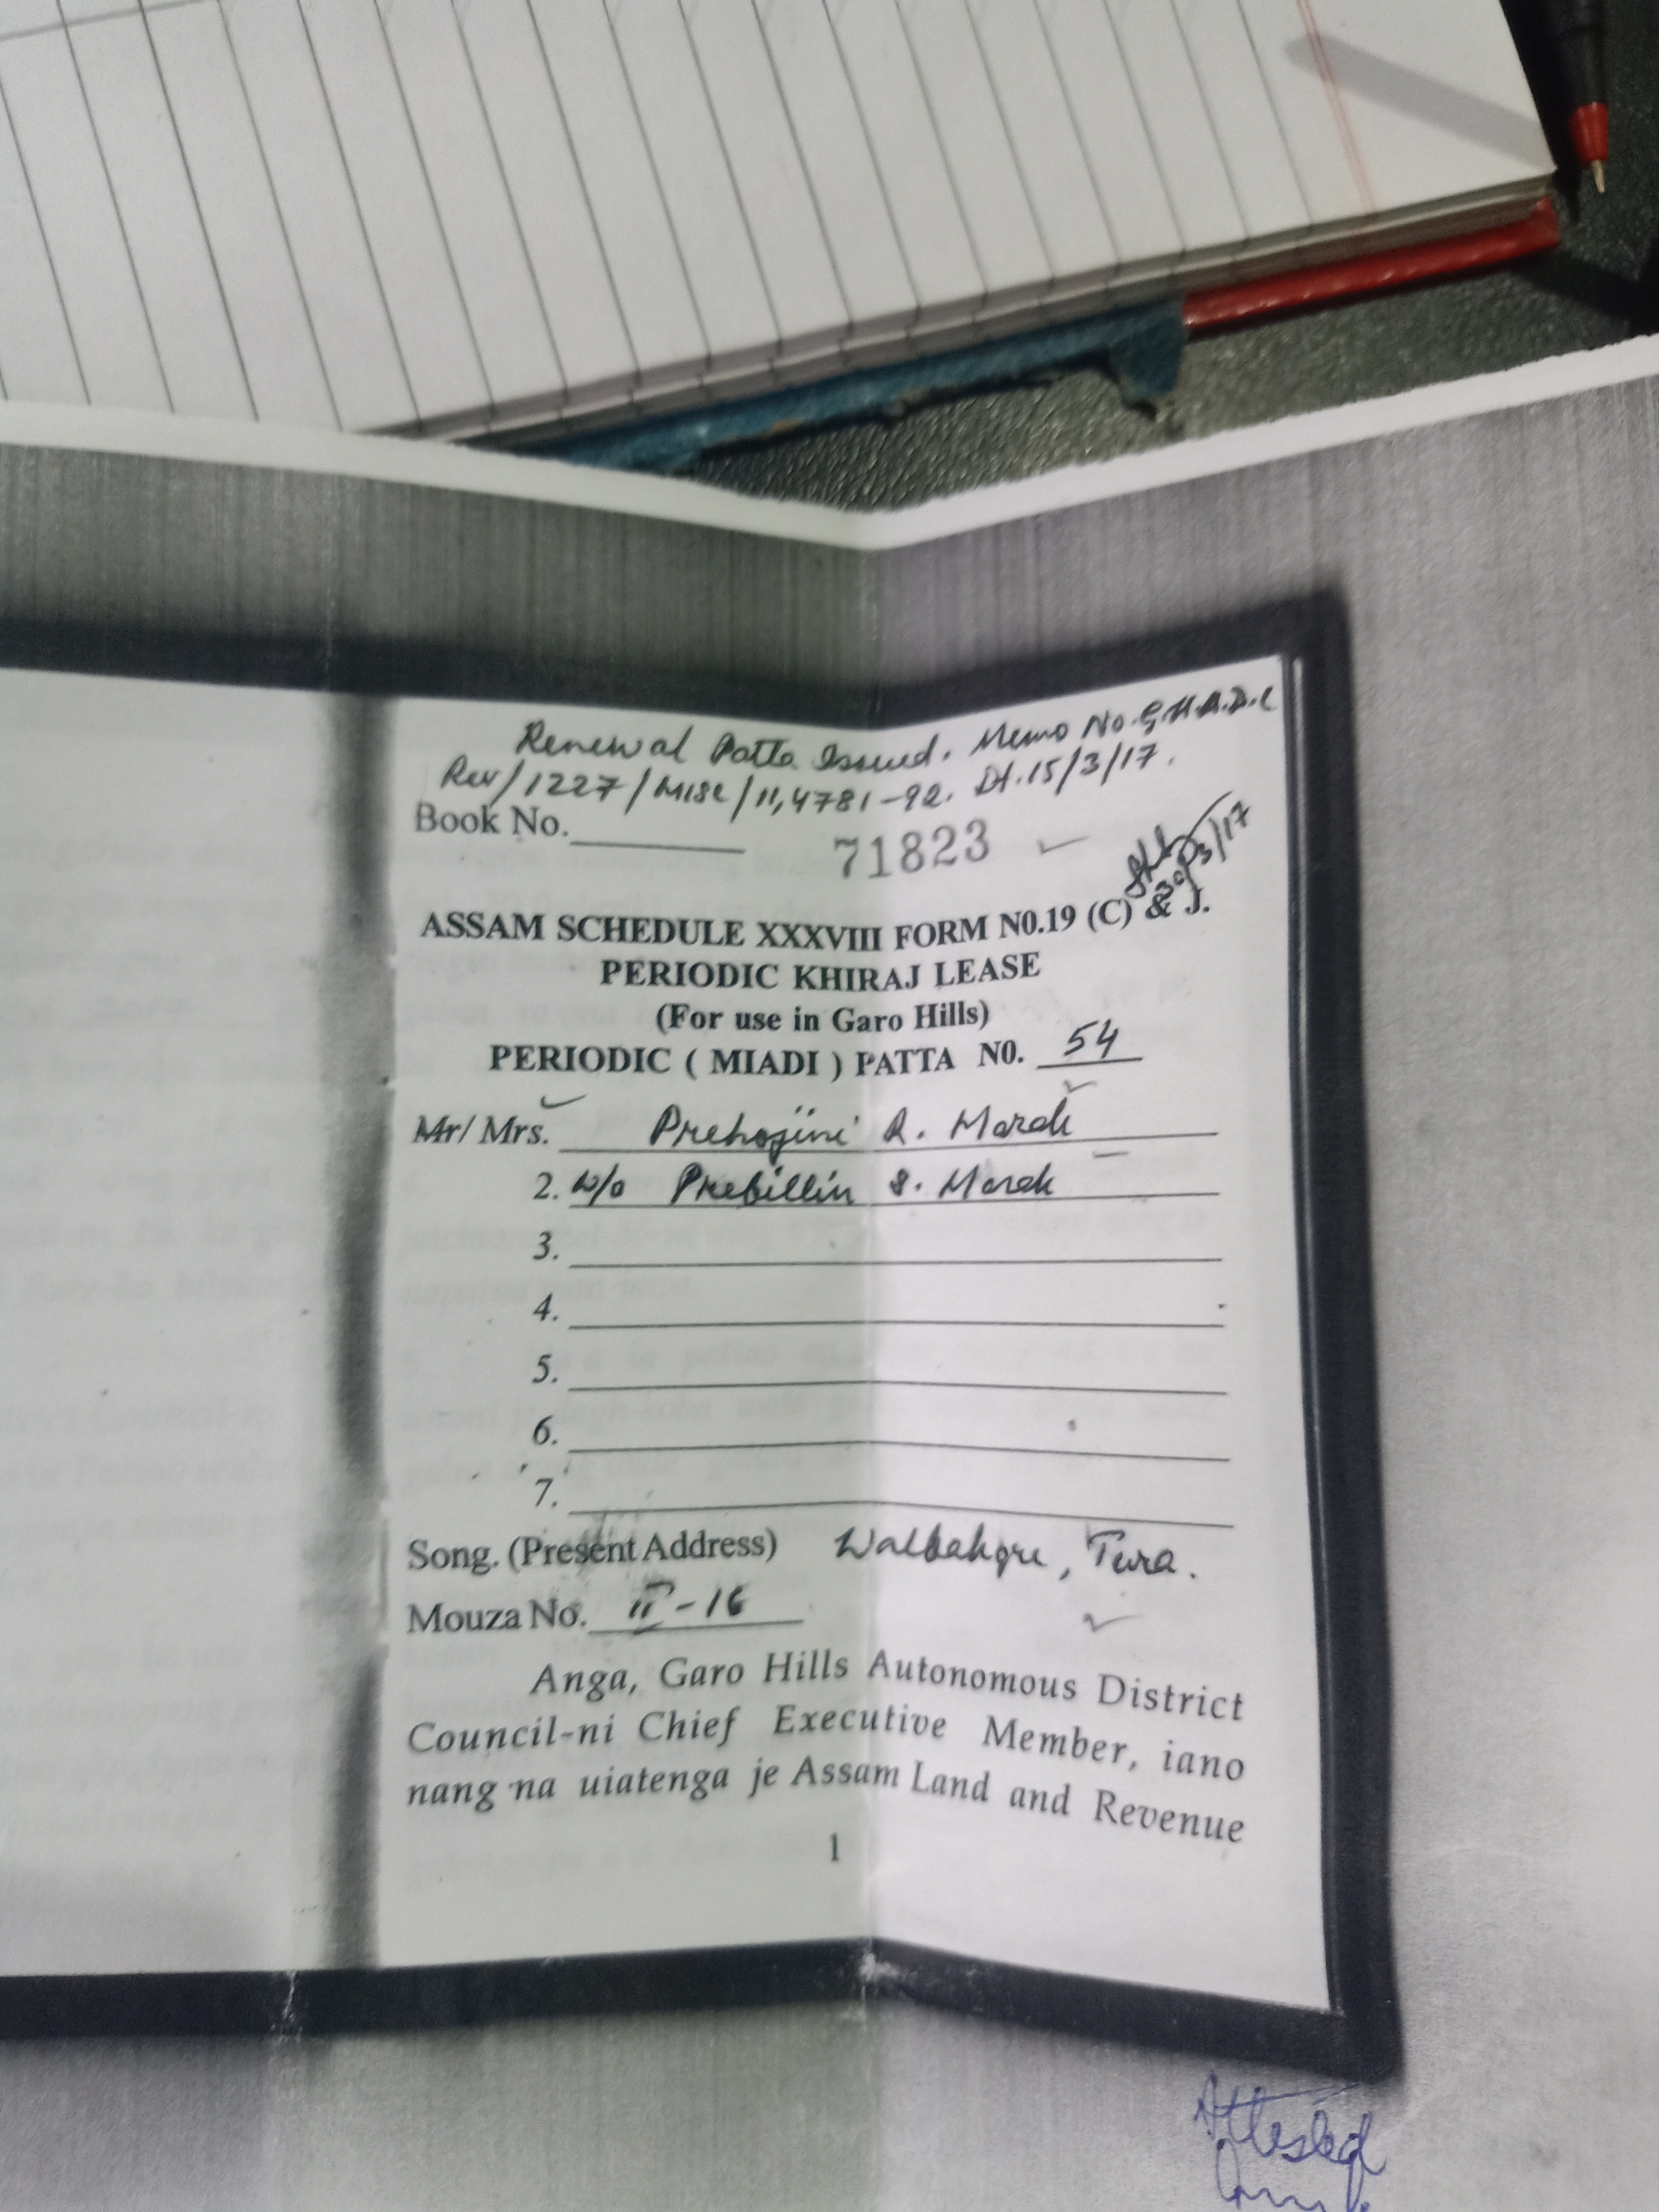 Renewal Patta Issued. Memo No. G.H.A.D.C
Rev/1227/Misc/11,4781-92. Dt.15/3/17.
Book No. 71823
30/3/17
ASSAM SCHEDULE XXXVIII FORM N0.19 (C) & J.
PERIODIC KHIRAJ LEASE
(For use in Garo Hills)
PERIODIC ( MIADI ) PATTA N0. 54
Mr/ Mrs. Prehojini R. Marak
2. W/o Prebillin S. Marak
3.
4.
5.
6.
7.
Song. (Present Address) Walbakgre, Tura.
Mouza No. II-16
Anga, Garo Hills Autonomous District
Council-ni Chief Executive Member, iano
nang·na uiatenga je Assam Land and Revenue
1
Attested